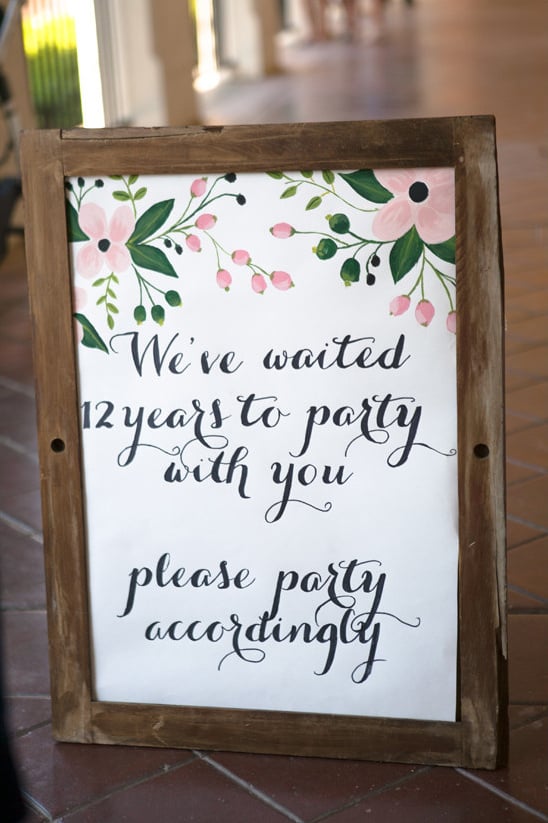 We've waited
12 years to party
with you
please party
accordingly